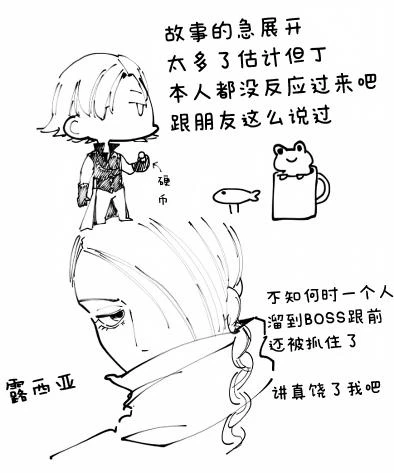 故事的急展开
太多了估计但丁
本人都没反应过来吧
跟朋友这么说过
硬
币
不知何时一个人
溜到BOSS跟前
还被抓住了
露西亚
讲真饶了我吧